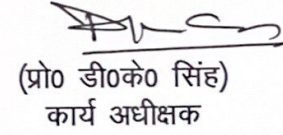 (प्रो0 डी0के0 सिंह)
कार्य अधीक्षक